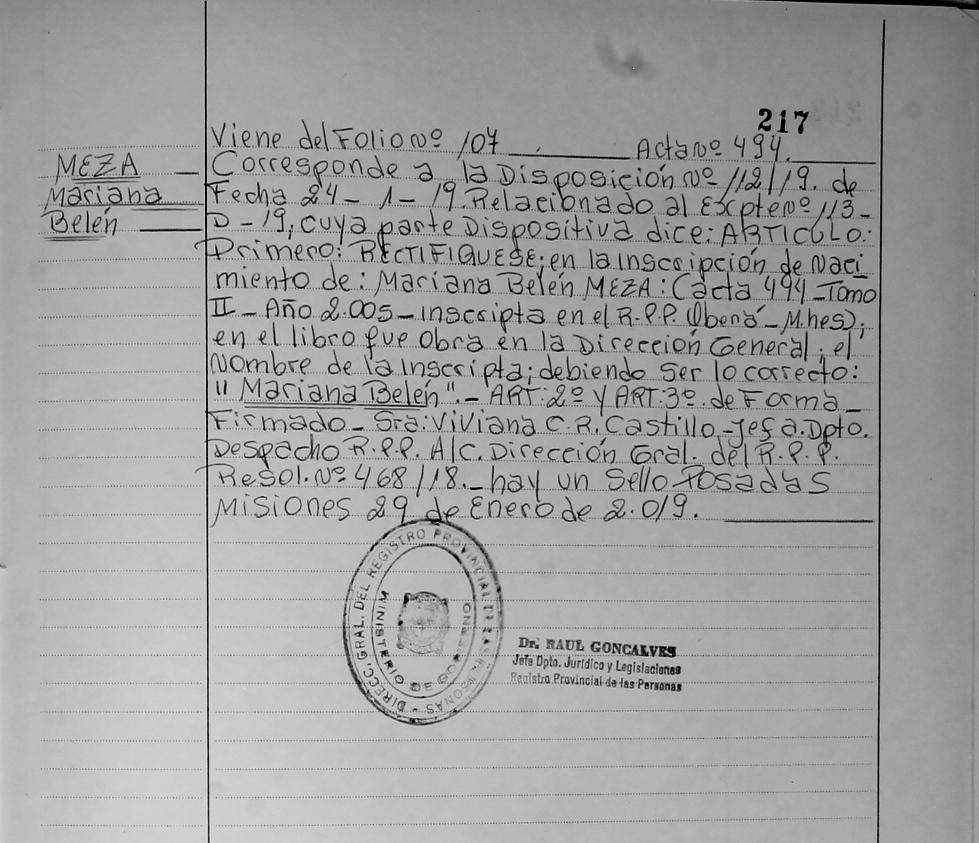 217
Viene del Folio Nº 107 ______ Acta Nº 494.
MEZA
Mariana
Belén
Corresponde a la Disposición Nº 112/19. de
Fecha 24 - 1 - 19. Relacionado al Expte Nº 113-
D - 19, cuya parte Dispositiva dice: ARTICULO:
Primero: RECTIFIQUESE; en la inscripción de Naci
miento de: Mariana Belén MEZA: (acta 494 - Tomo
II - Año 2.005 - inscripta en el R.P.P. (Oberá - M.nes);
en el libro que obra en la Dirección General; el
Nombre de la inscripta; debiendo ser lo correcto:
"Mariana Belén". - ART: 2º y ART: 3º. de Forma -
Firmado - Sra: Viviana C.R. Castillo - Jefa. Dpto.
Despacho R.P.P. A/C. Dirección Gral. del R.P.P.
Resol. Nº 468/18. - hay un Sello Posadas
Misiones 29 de Enero de 2.019.
DIRECC. GRAL. DEL REGISTRO PROVINCIAL DE LAS PERSONAS -
MINISTERIO DE GOBIERNO
Dr. RAUL GONCALVES
Jefe Dpto. Jurídico y Legislaciones
Registro Provincial de las Personas